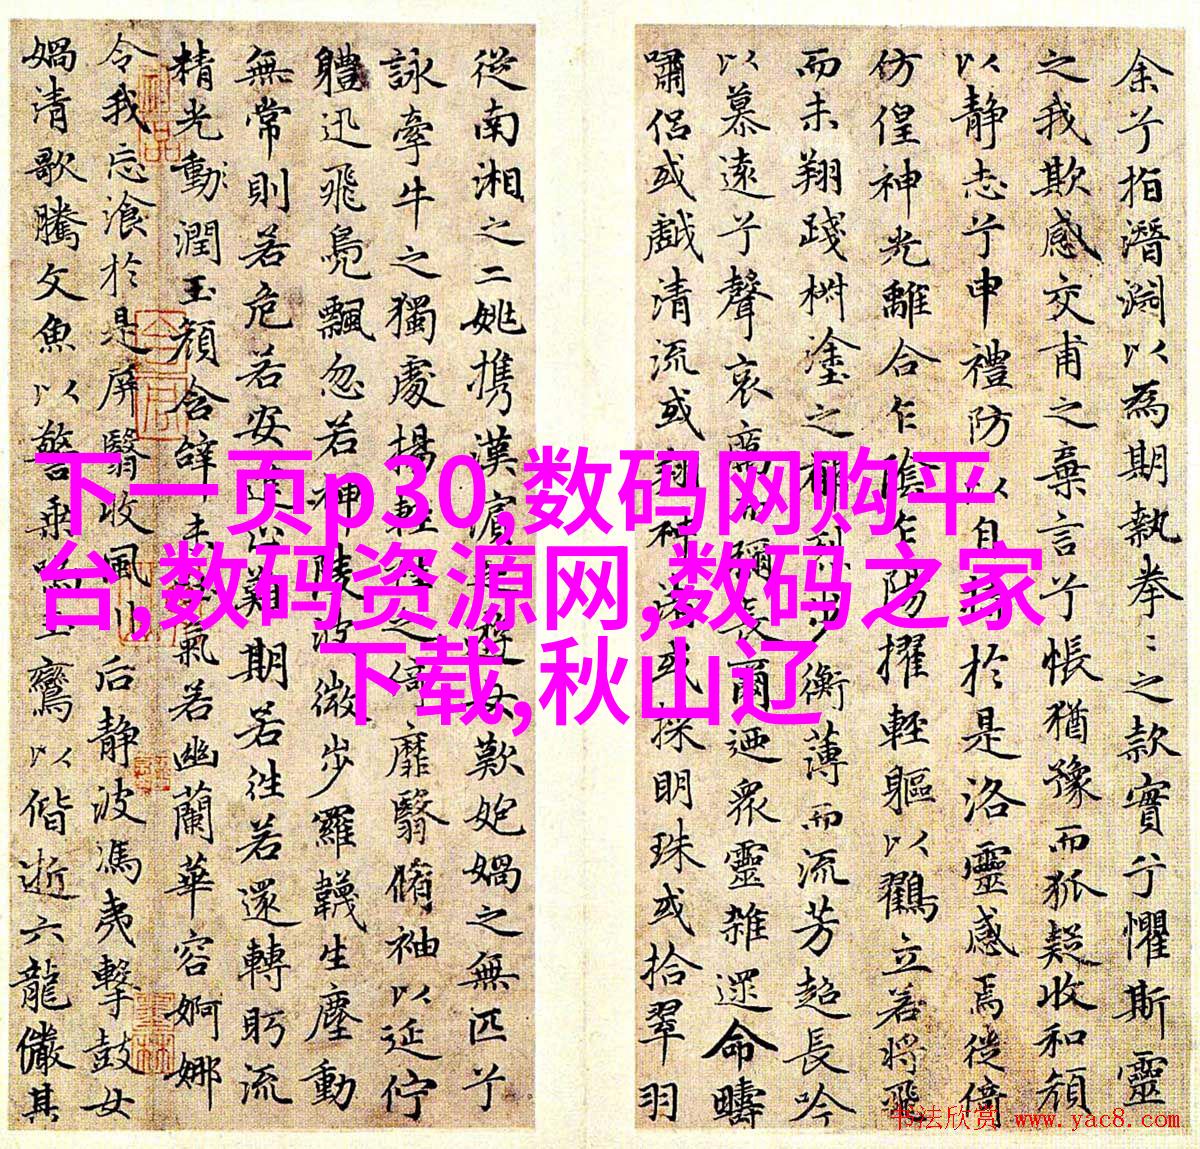 余兮指潛淵以為期執拳々之款實兮懼斯靈
之我欺感交甫之棄言兮悵猶豫而狐疑收和顏
以靜志兮申禮防以自持於是洛靈感焉徙倚
仿偟神光離合乍陰乍陽擢輕軀以鶴立若將飛
而未翔踐椒塗之郁烈步蘅薄而流芳超長吟
以慕遠兮聲哀厲而彌長爾迺眾靈雜遝命疇
嘯侶或戲清流或翔神渚或採明珠或拾翠羽
從南湘之二姚攜漢濱之遊女歎匏媧之無匹兮
詠牽牛之獨處揚輕袿之倚靡翳脩袖以延佇
體迅飛鳧飄忽若神陵波微步羅韈生塵動
無常則若危若安進止難期若往若還轉眄流
精光動潤玉顏含辭未吐氣若幽蘭華容婀娜
令我忘湌於是屏翳收風川后靜波馮夷擊鼓女
媧清歌騰文魚以警乘鳴玉鸞以偕逝六龍儼其
下一页p30,数码网购平
台,数码资源网,数码之家
下载,秋山辽
书法欣赏 www.yac8.com